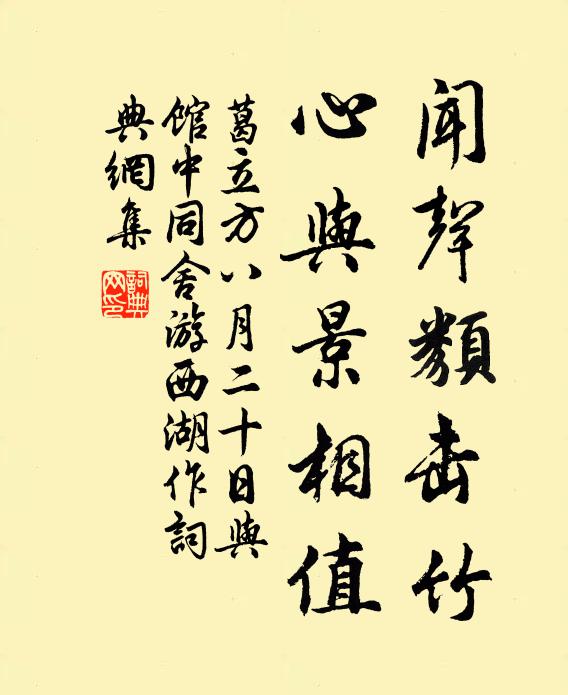 闻聲類击竹
心與景相值
葛立方八月二十日與
馆中同舍游西湖作詞
典網集
詞典网印